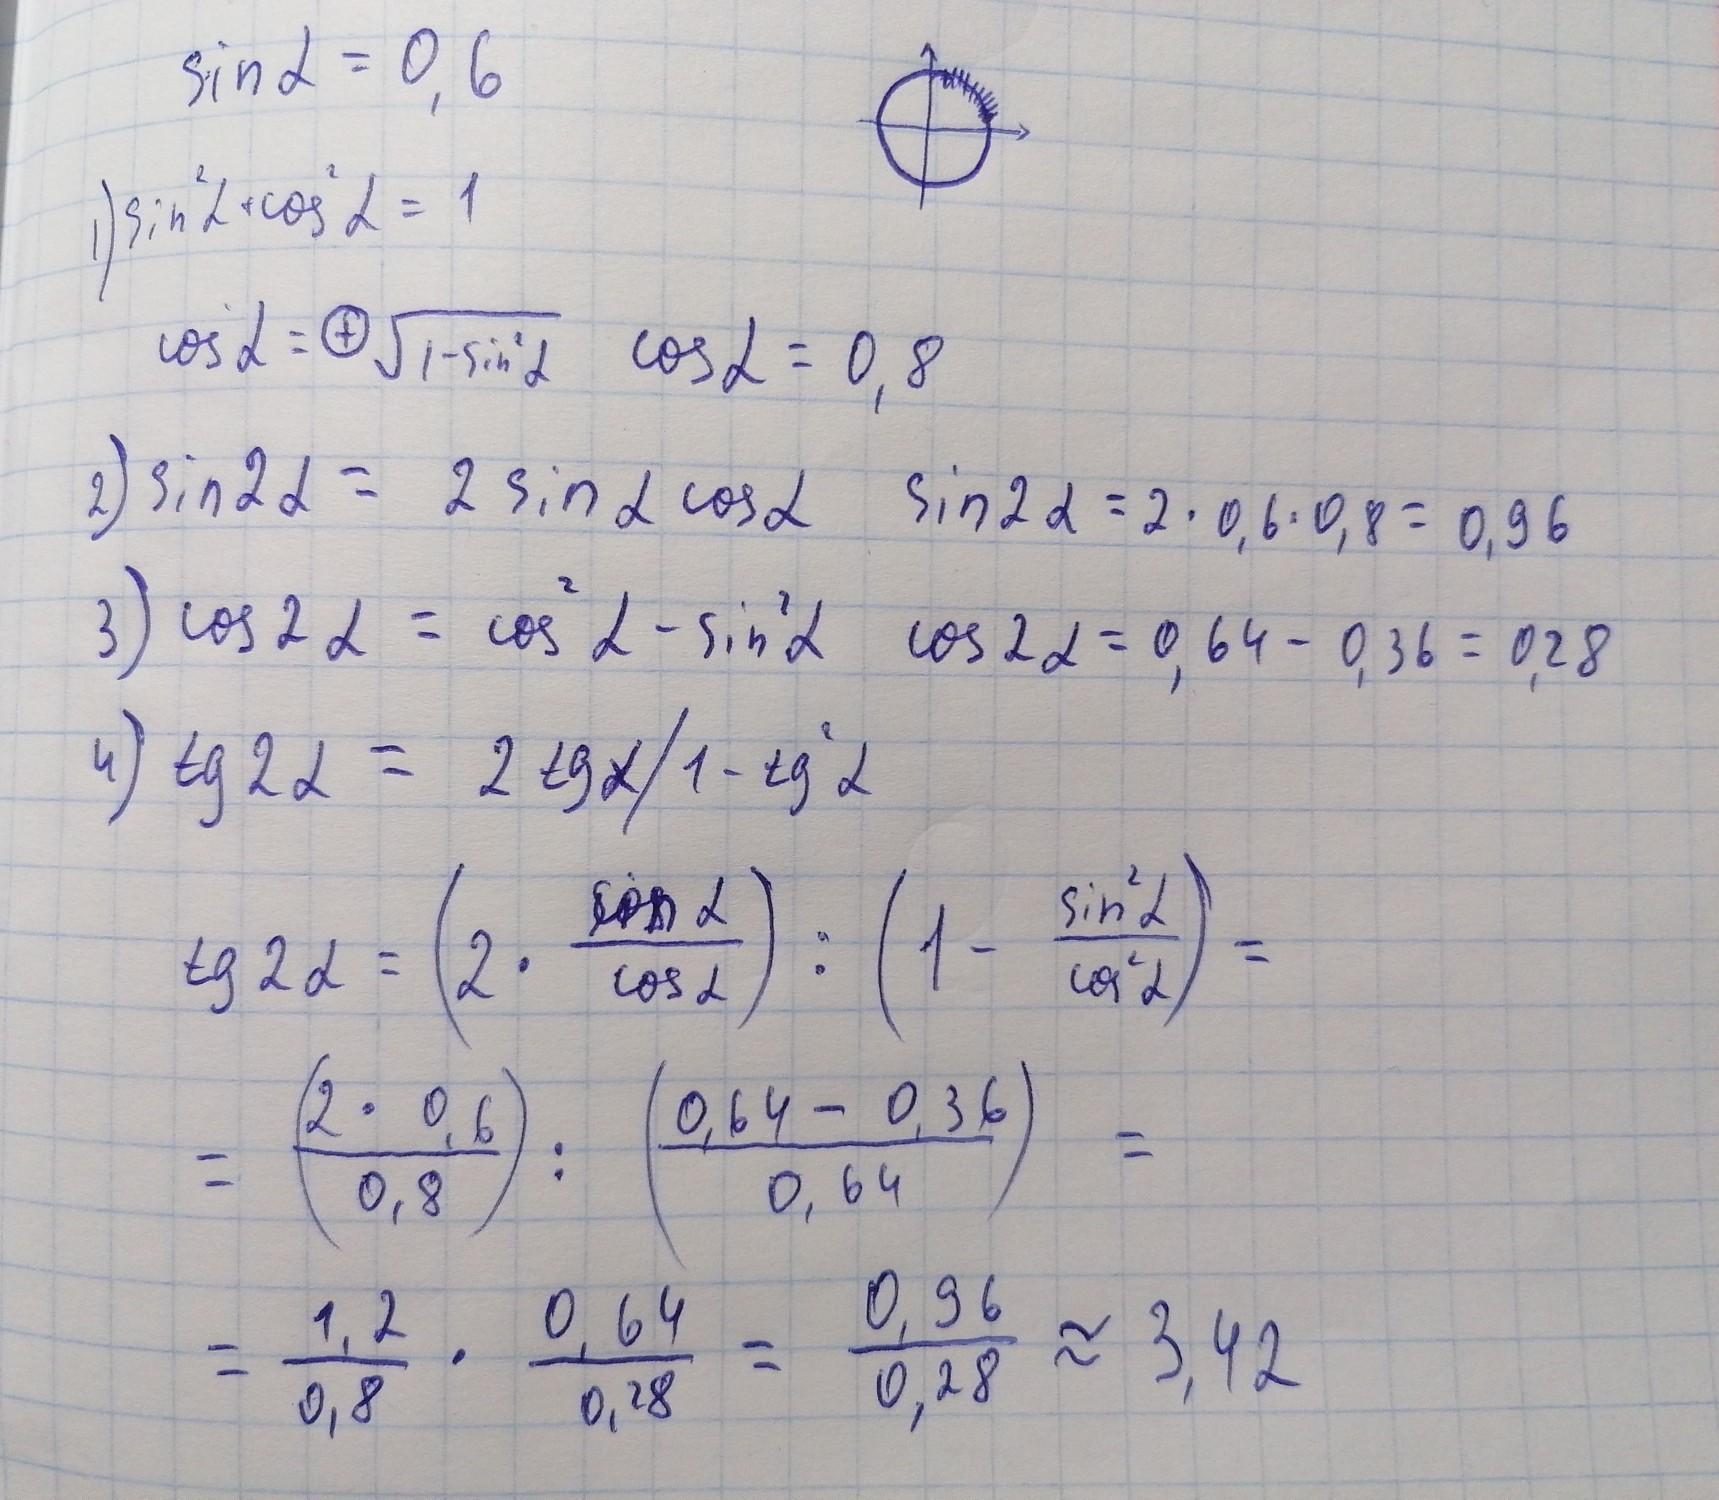 sin α = 0,6
1) sin²α + cos²α = 1
cos α = ⊕√(1-sin²α) cos α = 0,8
2) sin 2α = 2 sin α cos α sin 2α = 2 · 0,6 · 0,8 = 0,96
3) cos 2α = cos²α - sin²α cos 2α = 0,64 - 0,36 = 0,28
4) tg 2α = 2 tg α / 1 - tg²α
tg 2α = (2 · sin α / cos α) : (1 - sin²α / cos²α) =
= (2 · 0,6 / 0,8) : (0,64 - 0,36 / 0,64) =
= 1,2 / 0,8 · 0,64 / 0,28 = 0,96 / 0,28 ≈ 3,42